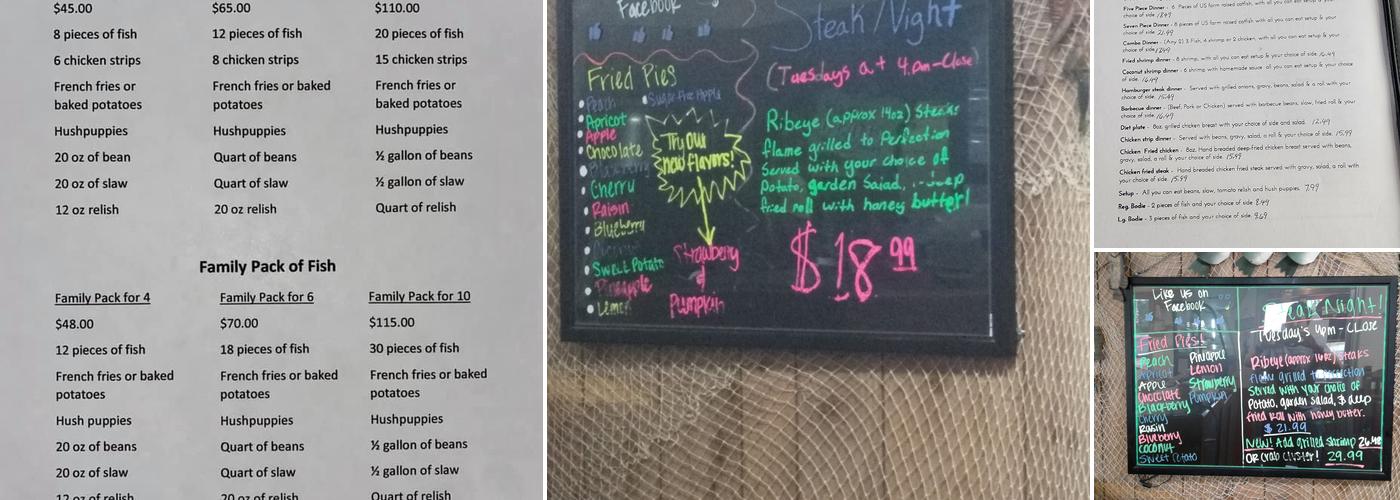 $45.00 $65.00 $110.00
8 pieces of fish 12 pieces of fish 20 pieces of fish
6 chicken strips 8 chicken strips 15 chicken strips
French fries or French fries or baked French fries or
baked potatoes potatoes baked potatoes
Hushpuppies Hushpuppies Hushpuppies
20 oz of bean Quart of beans ½ gallon of beans
20 oz of slaw Quart of slaw ½ gallon of slaw
12 oz relish 20 oz relish Quart of relish
Family Pack of Fish
Family Pack for 4 Family Pack for 6 Family Pack for 10
$48.00 $70.00 $115.00
12 pieces of fish 18 pieces of fish 30 pieces of fish
French fries or baked French fries or baked French fries or baked
potatoes potatoes potatoes
Hush puppies Hushpuppies Hushpuppies
20 oz of beans Quart of beans ½ gallon of beans
20 oz of slaw Quart of slaw ½ gallon of slaw
12 oz of relish 20 oz of relish Quart of relish
Facebook
Fried Pies
Peach Sugar Free Apple
Apricot
Apple
Chocolate
Cherry
Raisin
Blueberry
Sweet Potato
Pineapple
Lemon
Try our
new flavors!
Strawberry
&
Pumpkin
Steak Night
(Tuesdays at 4pm-Close)
Ribeye (approx 14oz) Steaks
flame grilled to Perfection
Served with your choice of
Potato, garden Salad, deep
fried roll with honey butter!
$18.99
Five Piece Dinner - Pieces of US farm raised catfish, with all you can eat setup & your
choice of side.
Seven Piece Dinner - 8 pieces of US farm raised catfish, with all you can eat setup & your
choice of side. 21.99
Combo Dinner - (Any 2) 3 Fish, 4 shrimp or 2 chicken, with all you can eat setup & your
choice of side.
Fried shrimp dinner - 8 shrimp, with all you can eat setup & your choice of side. 16.49
Coconut shrimp dinner - 6 shrimp with homemade sauce all you can eat setup & your
choice of side. 16.49
Hamburger steak dinner - Served with grilled onions, gravy, beans, salad & a roll with your
choice of side. 15.49
Barbecue dinner - (Beef, Pork or Chicken) served with barbecue beans, slaw, fried roll & your
choice of side. 16.49
Diet plate - 8oz. grilled chicken breast with your choice of side and salad. 12.49
Chicken strip dinner - Served with beans, gravy, salad, a roll & your choice of side. 15.99
Chicken Fried chicken - 8oz. Hand breaded deep-fried chicken breast served with beans,
gravy, salad, a roll & your choice of side. 15.99
Chicken fried steak - Hand breaded chicken fried steak served with gravy, salad, a roll with
your choice of side. 15.99
Setup - All you can eat beans, slaw, tomato relish and hush puppies. 7.99
Reg. Bodie - 2 pieces of fish and your choice of side. 8.49
Lg. Bodie - 3 pieces of fish and your choice of side. 9.69
Like us on
Facebook
Fried Pies!
Peach Pineapple
Apricot Lemon
Apple Strawberry
Chocolate Pumpkin
Blackberry
Cherry
Raisin
Blueberry
Coconut
Sweet Potato
Steak Night!
Tuesday's 4pm - Close
Ribeye (approx 14oz) Steaks
flame grilled to
served with your choice of
Potato, garden salad, & deep
fried Roll with honey butter.
$21.99
New! Add grilled shrimp 26.98
OR Crab cluster! 29.99